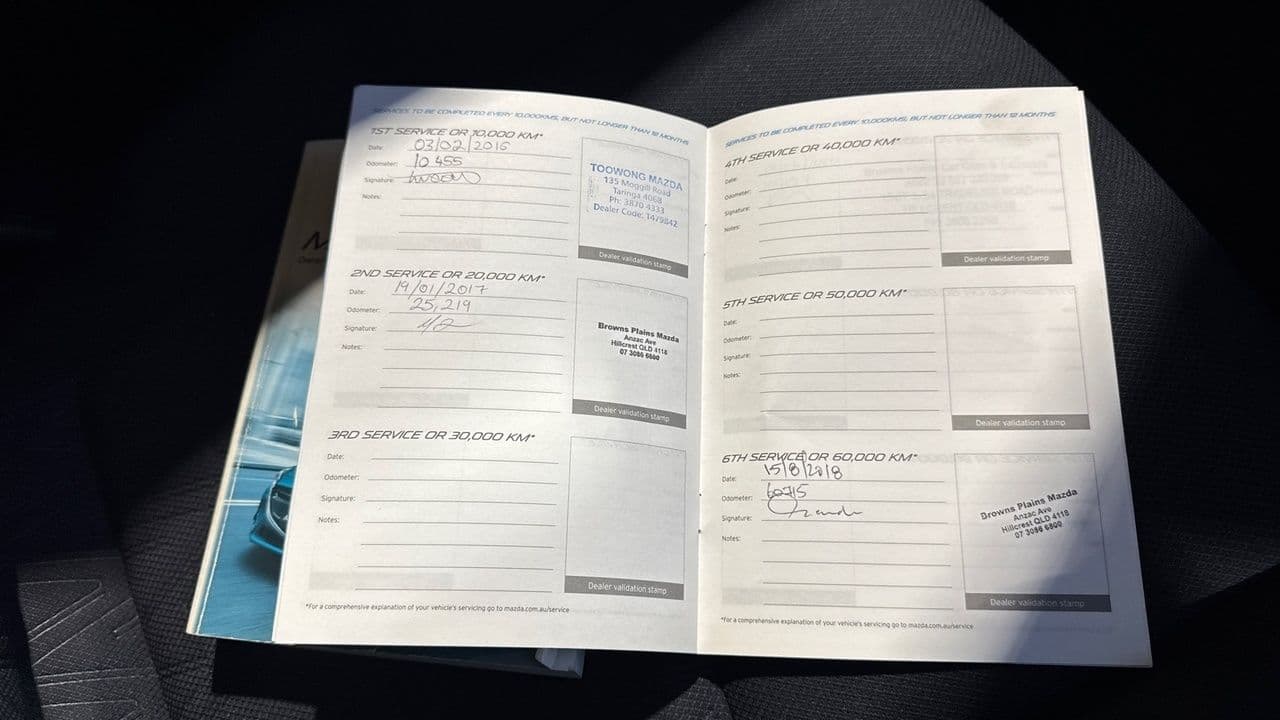 SERVICES TO BE COMPLETED EVERY 10,000KMS, BUT NOT LONGER THAN 12 MONTHS
1ST SERVICE OR 10,000 KM*
Date: 03/02/2016
Odometer: 10 455
Signature:
Notes:
TOOWONG MAZDA
135 Moggill Road
Taringa 4068
Ph: 3870 4333
Dealer Code: 1479842
Dealer validation stamp
2ND SERVICE OR 20,000 KM*
Date: 19/01/2017
Odometer: 25,219
Signature:
Notes:
Browns Plains Mazda
Anzac Ave
Hillcrest QLD 4118
07 3086 6800
Dealer validation stamp
3RD SERVICE OR 30,000 KM*
Date:
Odometer:
Signature:
Notes:
Dealer validation stamp
*For a comprehensive explanation of your vehicle's servicing go to mazda.com.au/service
SERVICES TO BE COMPLETED EVERY 10,000KMS, BUT NOT LONGER THAN 12 MONTHS
4TH SERVICE OR 40,000 KM*
Date:
Odometer:
Signature:
Notes:
Dealer validation stamp
5TH SERVICE OR 50,000 KM*
Date:
Odometer:
Signature:
Notes:
Dealer validation stamp
6TH SERVICE OR 60,000 KM*
Date: 15/8/2018
Odometer: 60715
Signature:
Notes:
Browns Plains Mazda
Anzac Ave
Hillcrest QLD 4118
07 3086 6800
Dealer validation stamp
*For a comprehensive explanation of your vehicle's servicing go to mazda.com.au/service